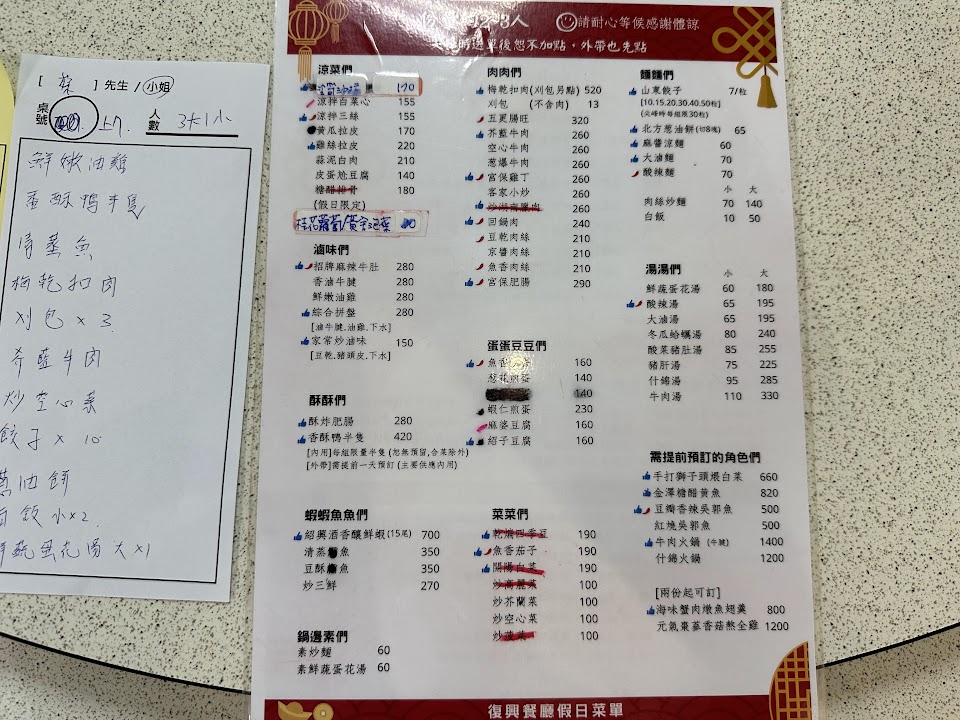 [ 蔡 ] 先生 / 小姐
桌號
人數 3大1小
鮮嫩油雞
香酥鴨半隻
清蒸魚
梅乾扣肉
刈包 x 3
芥藍牛肉
炒空心菜
餃子 x 10
蔥油餅
白飯 小x2
鮮蔬蛋花湯 大x1
請耐心等候感謝體諒
單後恕不加點，外帶也先點
涼菜們
170
涼拌白菜心 155
涼拌三絲 155
黃瓜拉皮 170
雞絲拉皮 220
蒜泥白肉 210
皮蛋尬豆腐 140
糖醋排骨 180
(假日限定)
桂花蘿蔔/黃金泡菜
滷味們
招牌麻辣牛肚 280
香滷牛腱 280
鮮嫩油雞 280
綜合拼盤 280
[滷牛腱.油雞.下水]
家常炒滷味 150
[豆乾.豬頭皮.下水]
酥酥們
酥炸肥腸 280
香酥鴨半隻 420
[內用]每組限量半隻 (恕無預留,合菜除外)
[外帶]需提前一天預訂 (主要供應內用)
蝦蝦魚魚們
紹興酒香釀鮮蝦(15尾) 700
清蒸 魚 350
豆酥 魚 350
炒三鮮 270
鍋邊素們
素炒麵 60
素鮮蔬蛋花湯 60
肉肉們
梅乾扣肉(刈包另點) 520
刈包 (不含肉) 13
五更腸旺 320
芥藍牛肉 260
空心牛肉 260
蔥爆牛肉 260
宮保雞丁 260
客家小炒 260
炒湖南臘肉 260
回鍋肉 240
豆乾肉絲 210
京醬肉絲 210
魚香肉絲 210
宮保肥腸 290
蛋蛋豆豆們
魚香 160
蔥花煎蛋 140
140
蝦仁煎蛋 230
麻婆豆腐 160
紹子豆腐 160
菜菜們
乾煸四季豆 190
魚香茄子 190
開陽白菜 190
炒高麗菜 100
炒芥蘭菜 100
炒空心菜 100
炒菠菜 100
麵麵們
山東餃子 7/粒
[10.15.20.30.40.50粒]
(尖峰時每組限30粒)
北方蔥油餅(切8塊) 65
麻醬涼麵 60
大滷麵 70
酸辣麵 70
小 大
肉絲炒麵 70 140
白飯 10 50
湯湯們 小 大
鮮蔬蛋花湯 60 180
酸辣湯 65 195
大滷湯 65 195
冬瓜蛤蠣湯 80 240
酸菜豬肚湯 85 255
豬肝湯 75 225
什錦湯 95 285
牛肉湯 110 330
需提前預訂的角色們
手打獅子頭煨白菜 660
金澤糖醋黃魚 820
豆瓣香辣吳郭魚 500
紅燒吳郭魚 500
牛肉火鍋 (牛腱) 1400
什錦火鍋 1200
[兩份起可訂]
海味蟹肉燉魚翅羹 800
元氣棗蔘香菇熬全雞 1200
復興餐廳假日菜單